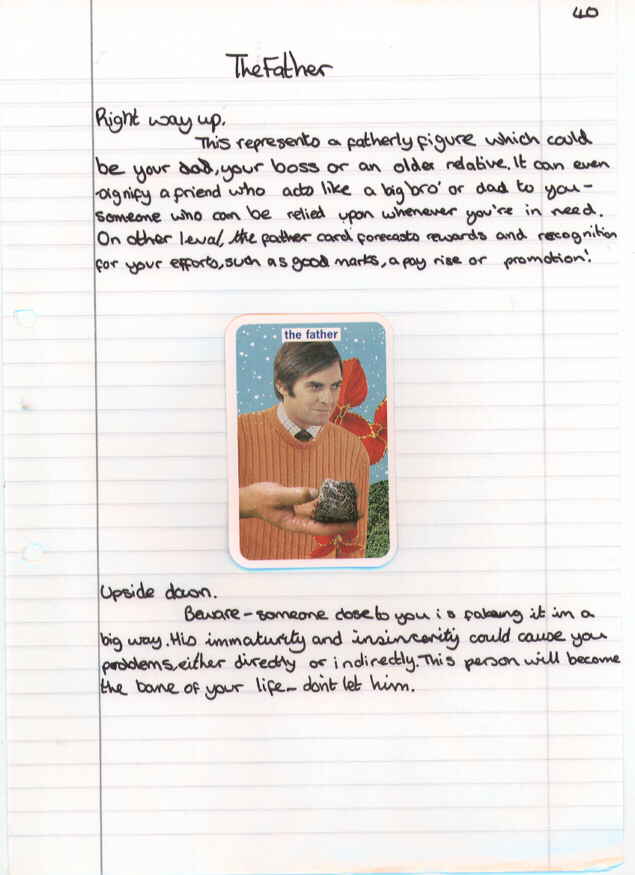 40
The Father
Right way up.
This represents a fatherly figure which could
be your dad, your boss or an older relative. It can even
signify a friend who acts like a big bro' or dad to you -
someone who can be relied upon whenever you're in need.
On other level, the father card forecasts rewards and recognition
for your efforts, such as good marks, a pay rise or promotion!
the father
Upside down.
Beware - someone close to you is faking it in a
big way. His immaturity and insincerity could cause you
problems, either directly or indirectly. This person will become
the bane of your life - don't let him.